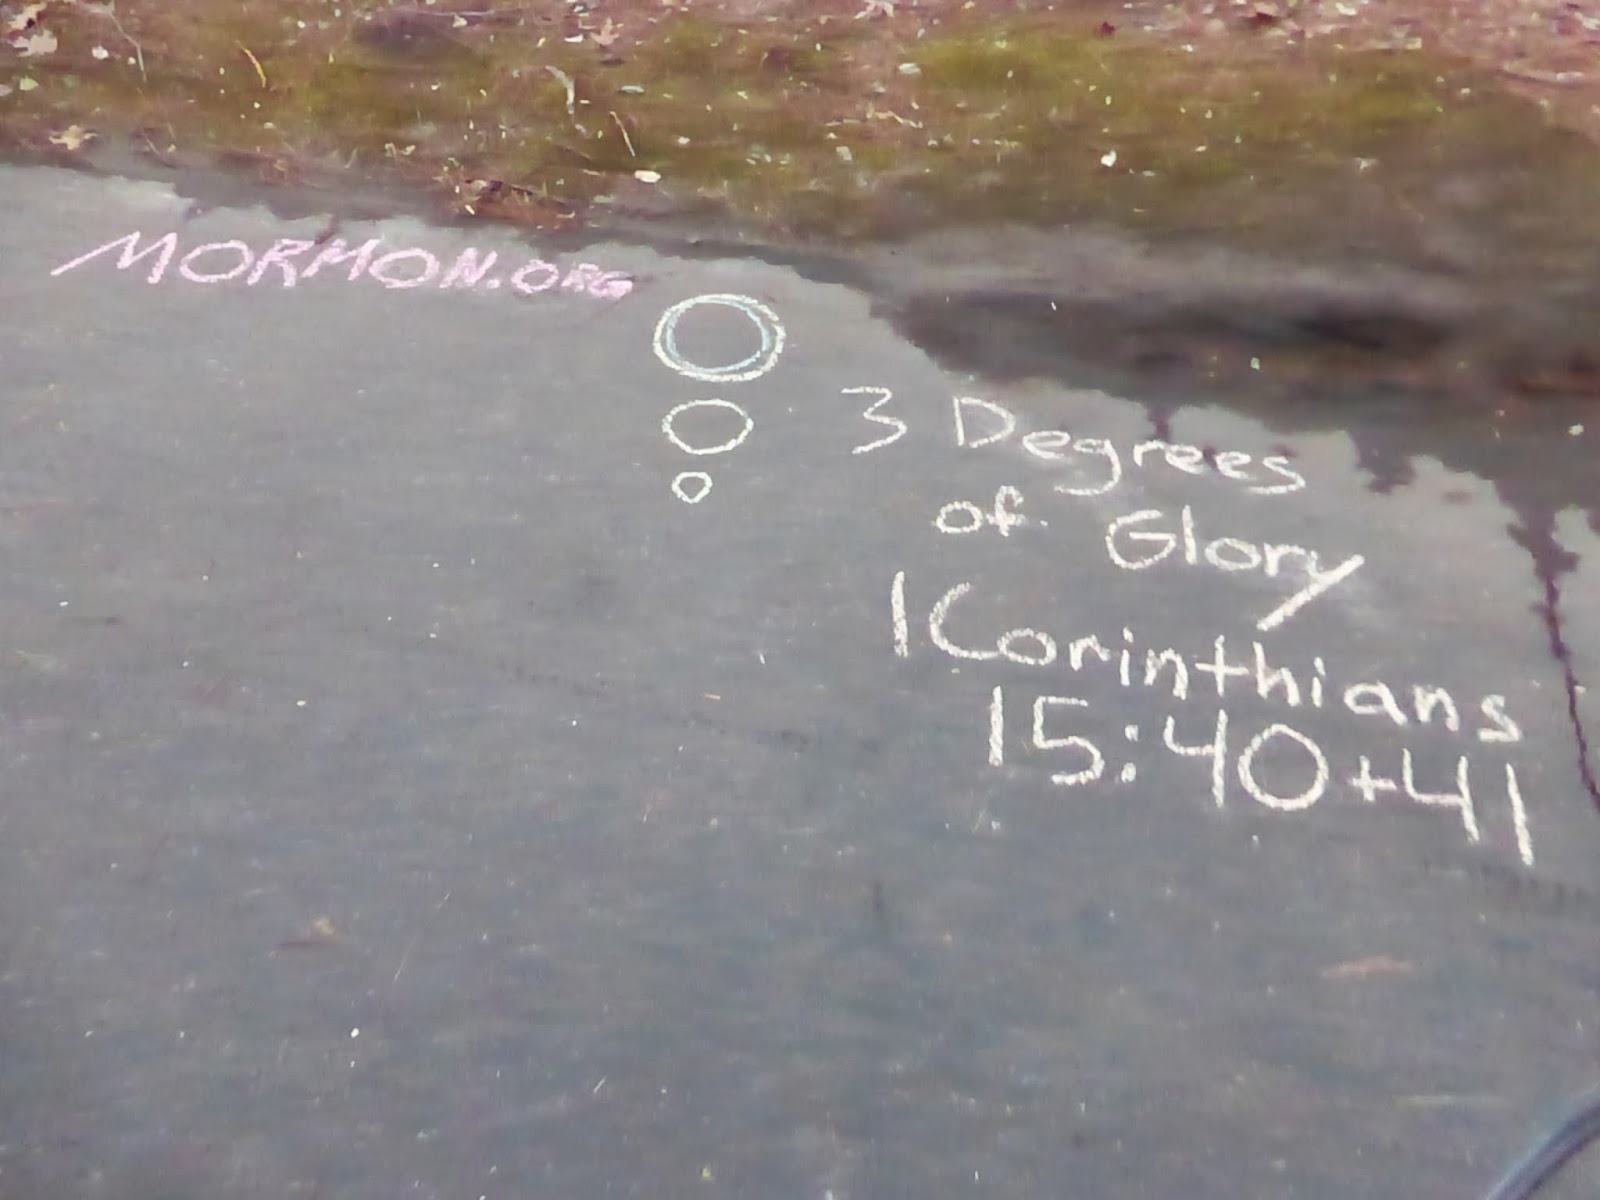 MORMON.ORG
3 Degrees
of Glory
1 Corinthians
15:40+41